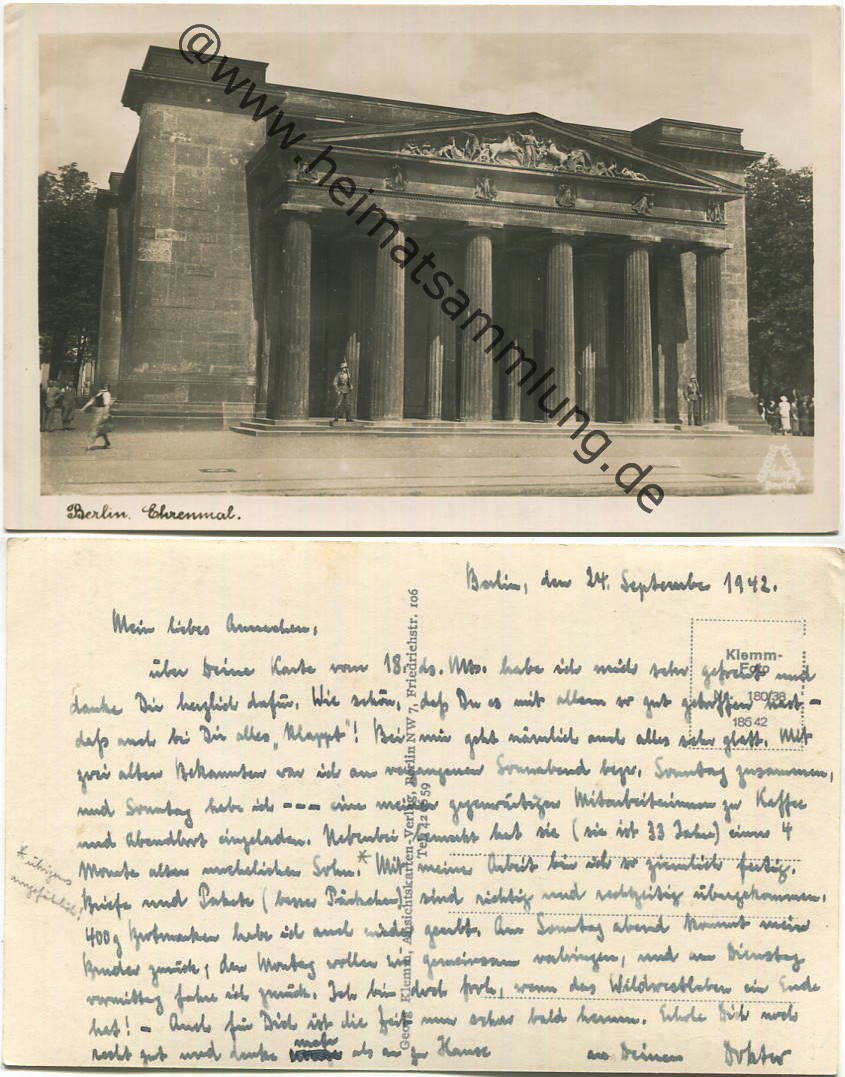 @www.heimatsammlung.de
Berlin. Ehrenmal.
Berlin, den 24. September 1942.
Mein liebes Annachen,
über Deine Karte vom 18. ds. Mts. habe ich mich sehr gefreut und
danke Dir herzlich dafür. Wie schön, daß Du es mit allem so gut getroffen hast -
daß auch bei Dir alles "klappt"! Bei mir geht nämlich auch alles sehr glatt. Mit
zwei alten Bekannten war ich am vergangenen Sonnabend bezw. Sonntag zusammen,
und Sonntag habe ich --- eine meiner gegenwärtigen Mitarbeiterinnen zu Kaffee
und Abendbrot eingeladen. Nebenbei gemerkt hat sie (sie ist 33 Jahre) einen 4
Monate alten unehelichen Sohn.* Mit meine Arbeit bin ich so ziemlich fertig.
Briefe und Pakete (besser Päckchen) sind richtig und rechtzeitig übergekommen.
400g Brotmarken habe ich auch wieder geerbt. Am Sonntag abend kommt mein
Bruder zurück; den Montag wollen wir gemeinsam verbringen, und am Dienstag
vormittag fahre ich zurück. Ich bin doch froh, wenn das Wildwestleben ein Ende
hat! - Auch für Dich ist die Zeit nun schon bald herum. Erhole Dich noch
recht gut und denke mehr als an zu Hause
an Deinen Doktor
* übrigens
Klemm-
Foto
180/38
186 42
Georg Klemm, Ansichtskarten-Verlag, Berlin NW 7, Friedrichstr. 106